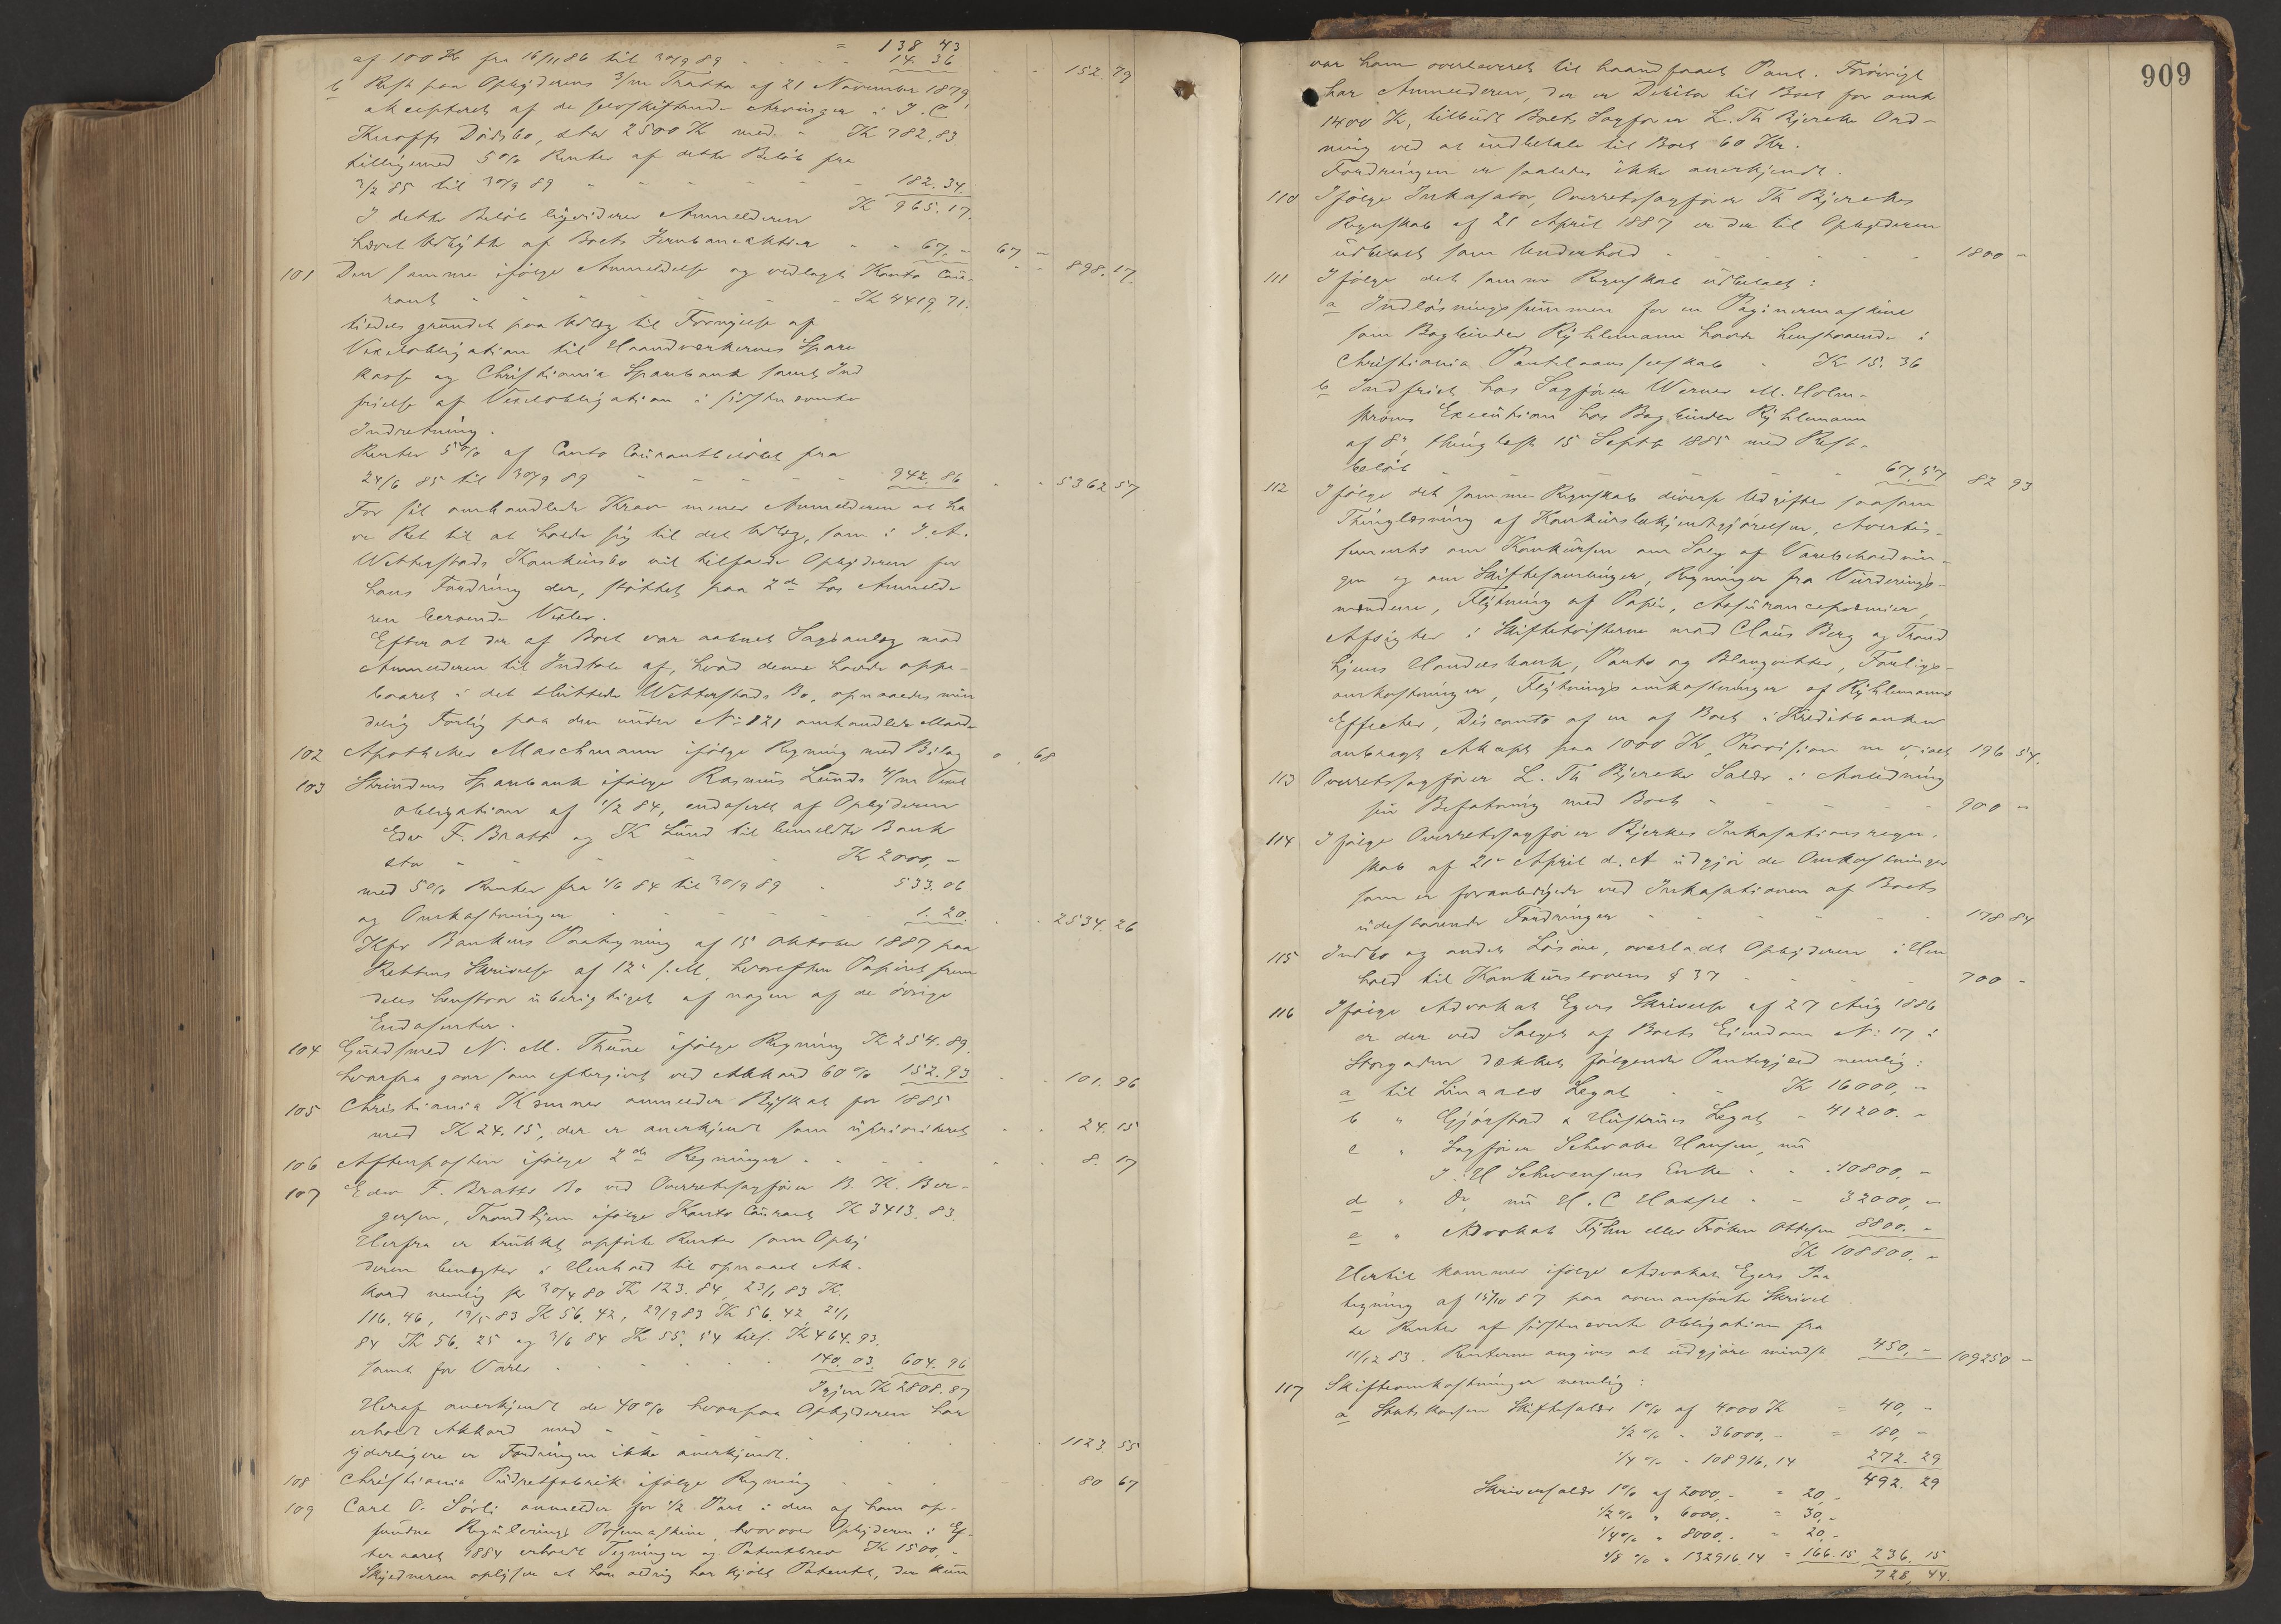 = 138 43
af 100 Kr fra 15/11 86 til 30/9 89 - - - 14. 36 - - 152. 79
b Rest paa Opbyderens 3/m Tratta af 21 November 1879,
akcepteret af de selvskiftende Arvinger i J. C.
Knoffs Dødsbo, stor 2500 Kr med - Kr 782. 83.
tilligemed 5 % Renter af dette Beløb fra
3/2 85 til 30/9 89 - - - - - 182. 34.
Kr 965. 17.
I dette Beløb liqviderer Anmelderen
hævet Udbytte af Boets Jernbaneaktier - - 67, - 67 -
- - 898. 17.
101 Den samme ifølge Anmeldelse og vedlagt Konto Cou-
rant - - - - - - - Kr 4419, 71.
tildels grundet paa Udlæg til Fornyelse af
Vexelobligation til Haandværkernes Spare
kasse og Christiania Sparebank samt Ind
frielse af Vexelobligation i sidstnævnte
Indretning.
Renter 5 % af Conto Courantbeløbet fra
24/6 85 til 30/9 89 - - - - - 942. 86 - - 5362 57
For sit omhandlede Krav mener Anmelderen at ha
ve Ret til at holde sig til det Udlæg, som i J. A.
Wetterstads Konkursbo vil tilfalde Opbyderen for
hans Fordring der, støttet paa 2de hos Anmelde
ren beroende Vexler.
Efter at der af Boet var aabnet Sagsanlæg mod
Anmelderen til Indtale af, hvad denne havde oppe-
baaret i det sluttede Wetterstads Bo, opnaaedes min
delig Forlig paa den under No 121 omhandlede Maade
102 Apotheker Maschmann ifølge Regning med Bilag - 0. 68
103 Strindens Sparebank ifølge Rasmus Lunds 4/m Vexel
obligation af 1/2 84, endosseret af Opbyderen
Edv F. Bratt og K Lund til bemeldte Bank
stor - - - - - Kr 2000, -
med 5 % Renter fra 1/6 84 til 30/9 89 - 533. 06
og Omkostninger - - - - - - - 1. 20. - - 2534. 26
Kfr Bankens Paategning af 15 Oktober 1887 paa
Rettens Skrivelse af 12 s. M, hvorefter Papiret frem
deles henstaar uberigtiget af nogen af de øvrige
Endosenter.
104 Guldsmed N. M. Thune ifølge Regning Kr 254. 89.
hvorfra gaar som eftergivet ved Akkord 60 % 152. 93 - - 101. 96
105 Christiania Kæmner anmelder Byskat for 1885
med Kr 24. 15, der er anerkjendt som uprioriteret - - 24. 15
106 Aftenposten ifølge 2de Regninger - - - - - - 8. 17
107 Edv F. Bratts Bo ved Overretssagfører B. K. Ber-
gersen, Trondhjem ifølge Konto Courant Kr 3413. 83.
Herfra er trukket opførte Renter som Opby
deren benegter i Henhold til opnaaet Ak-
kord nemlig pr 30/4 80 Kr 123. 84, 23/1 83 Kr
116. 46, 19/5 83 Kr 56. 42, 29/9 83 Kr 56. 42, 21/1
84 Kr 56. 25 og 3/6 84 Kr 55. 54 tils. Kr 464. 93.
samt for Varer - - - - - - 140. 03. 604. 96
Igjen Kr 2808. 87
Heraf anerkjendt de 40 % hvorpaa Opbyderen har
erholdt Akkord med - - - - - - - - 1123. 55
yderligere er Fordringen ikke anerkjendt.
108 Christiania Pudretfabrik ifølge Regning - - - - 80 67
109 Carl O. Sørli anmelder for 1/2 Part i den af ham op-
fundne Regulerings Posemaskine, hvorover Opbyderen i Ef-
teraaret 1884 erholdt Tegninger og Patentbrev Kr 1500, -
Skyldneren oplyser at han aldrig har kjøbt Patentet, der kun
909
var ham overleveret til haandfaaet Pant. Forøvrigt
har Anmelderen, der er Debitor til Boet for omtr
1400 Kr, tilbudt Boets Sagfører L. Th Bjercke Ord-
ning ved at indbetale til Boet 60 Kr.
Fordringen er saaledes ikke anerkjendt.
110 Ifølge Inkasator, Overretssagfører Th Bjerckes
Regnskab af 21 April 1887 er der til Opbyderen
udbetalt som Underhold - - - - - - 1800 -
111 Ifølge det samme Regnskab udbetalt:
a Indløsningssummen for en Paginermaskine
som Bogbinder Rÿhlemann havde henstaaende i
Christiania Pantelaanselskab - Kr 15. 36
b Indfriet hos Sagfører Werner M. Holm-
strøms Execution hos Bogbinder Rÿhlemann
af 8", thinglæst 15 Septb 1885 med Rest-
beløb - - - - - - 67. 57 82 93
112 Ifølge det samme Regnskab diverse Udgifter saasom
Thinglæsning af Konkursbekjendtgjørelsen, Avertis-
sements om Konkursen om Salg af Varebeholdnin-
gen og om Skiftesamlinger, Regninger fra Vurderings-
mændene, Flytning af Papir, Assurancepræmier,
Afsigter i Skiftetvisterne mod Claus Berg og Trond
hjems Handelsbank, Porto og Blanqvetter, Forligs-
omkostninger, Flytningsomkostninger af Rÿhlemanns
Effecter, Disconto af en af Boet i Kreditbanken
anbragt Akcept paa 1000 Kr, Provision m v, ialt 196 54.
113 Overretssagfører L. Th Bjercke Salær i Anledning
sin Befatning med Boet - - - - - - 900 -
114 Ifølge Overretssagfører Bjerkes Inkasationsregn-
skab af 21 April d. A udgjør de Omkostninger
som er foranledigede ved Inkasationen af Boets
udestaaende Fordringer - - - - - - 178 84
115 Indbo og andet Løsøre, overladt Opbyderen i Hen
hold til Konkurslovens § 37 - - - - 700 -
116 Ifølge Advokat Egers Skrivelse af 27 Aug 1886
er der ved Salget af Boets Eiendom No 17 i
Storgaden dækket følgende Pantegjæld nemlig:
a til Linaaes Legat - - Kr 16000, -
b " Gjørstad & Hustrues Legat - 41200. -
c " Sagfører Schwabe Hansen, nu
J. H Schwensens Enke - - - 10800, -
d " Do nu H. C Hassel - - 32000, -
e " Advokat Fÿhn eller Frøken Ottesen 8800. -
Kr 108800, -
Hertil kommer ifølge Advokat Egers Paa
tegning af 15/10 87 paa ovenanførte Skrivel
se Renter af sidstnævnte Obligation fra
11/12 83. Renterne angives at udgjøre mindst 450, - 109250 -
117 Skifteomkostninger nemlig:
a Statskassen Skiftesalær 1 % af 4000 Kr = 40, -
1/2 % - 36000, - = 180, -
1/4 % - 108916. 14 272. 29
492. 29
Skriversalær 1 % af 2000, - = 20, -
1/2 % " 6000, - = 30, -
1/4 % " 8000, - = 20 -
1/8 % " 132916 14 = 166. 15 236. 15
728, 44.